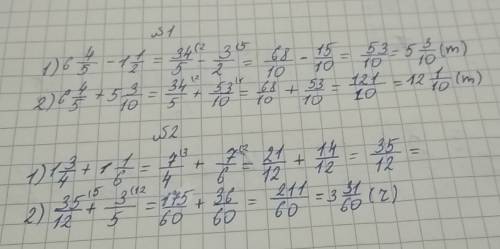 №1
1) 6 4/5 - 1 1/2 = 34/5 (2 - 3/2 (5 = 68/10 - 15/10 = 53/10 = 5 3/10 (m)
2) 6 4/5 + 5 3/10 = 34/5 (2 + 53/10 (1 = 68/10 + 53/10 = 121/10 = 12 1/10 (m)
№2
1) 1 3/4 + 1 1/6 = 7/4 (3 + 7/6 (2 = 21/12 + 14/12 = 35/12 =
2) 35/12 (5 + 3/5 (12 = 175/60 + 36/60 = 211/60 = 3 31/60 (ч)